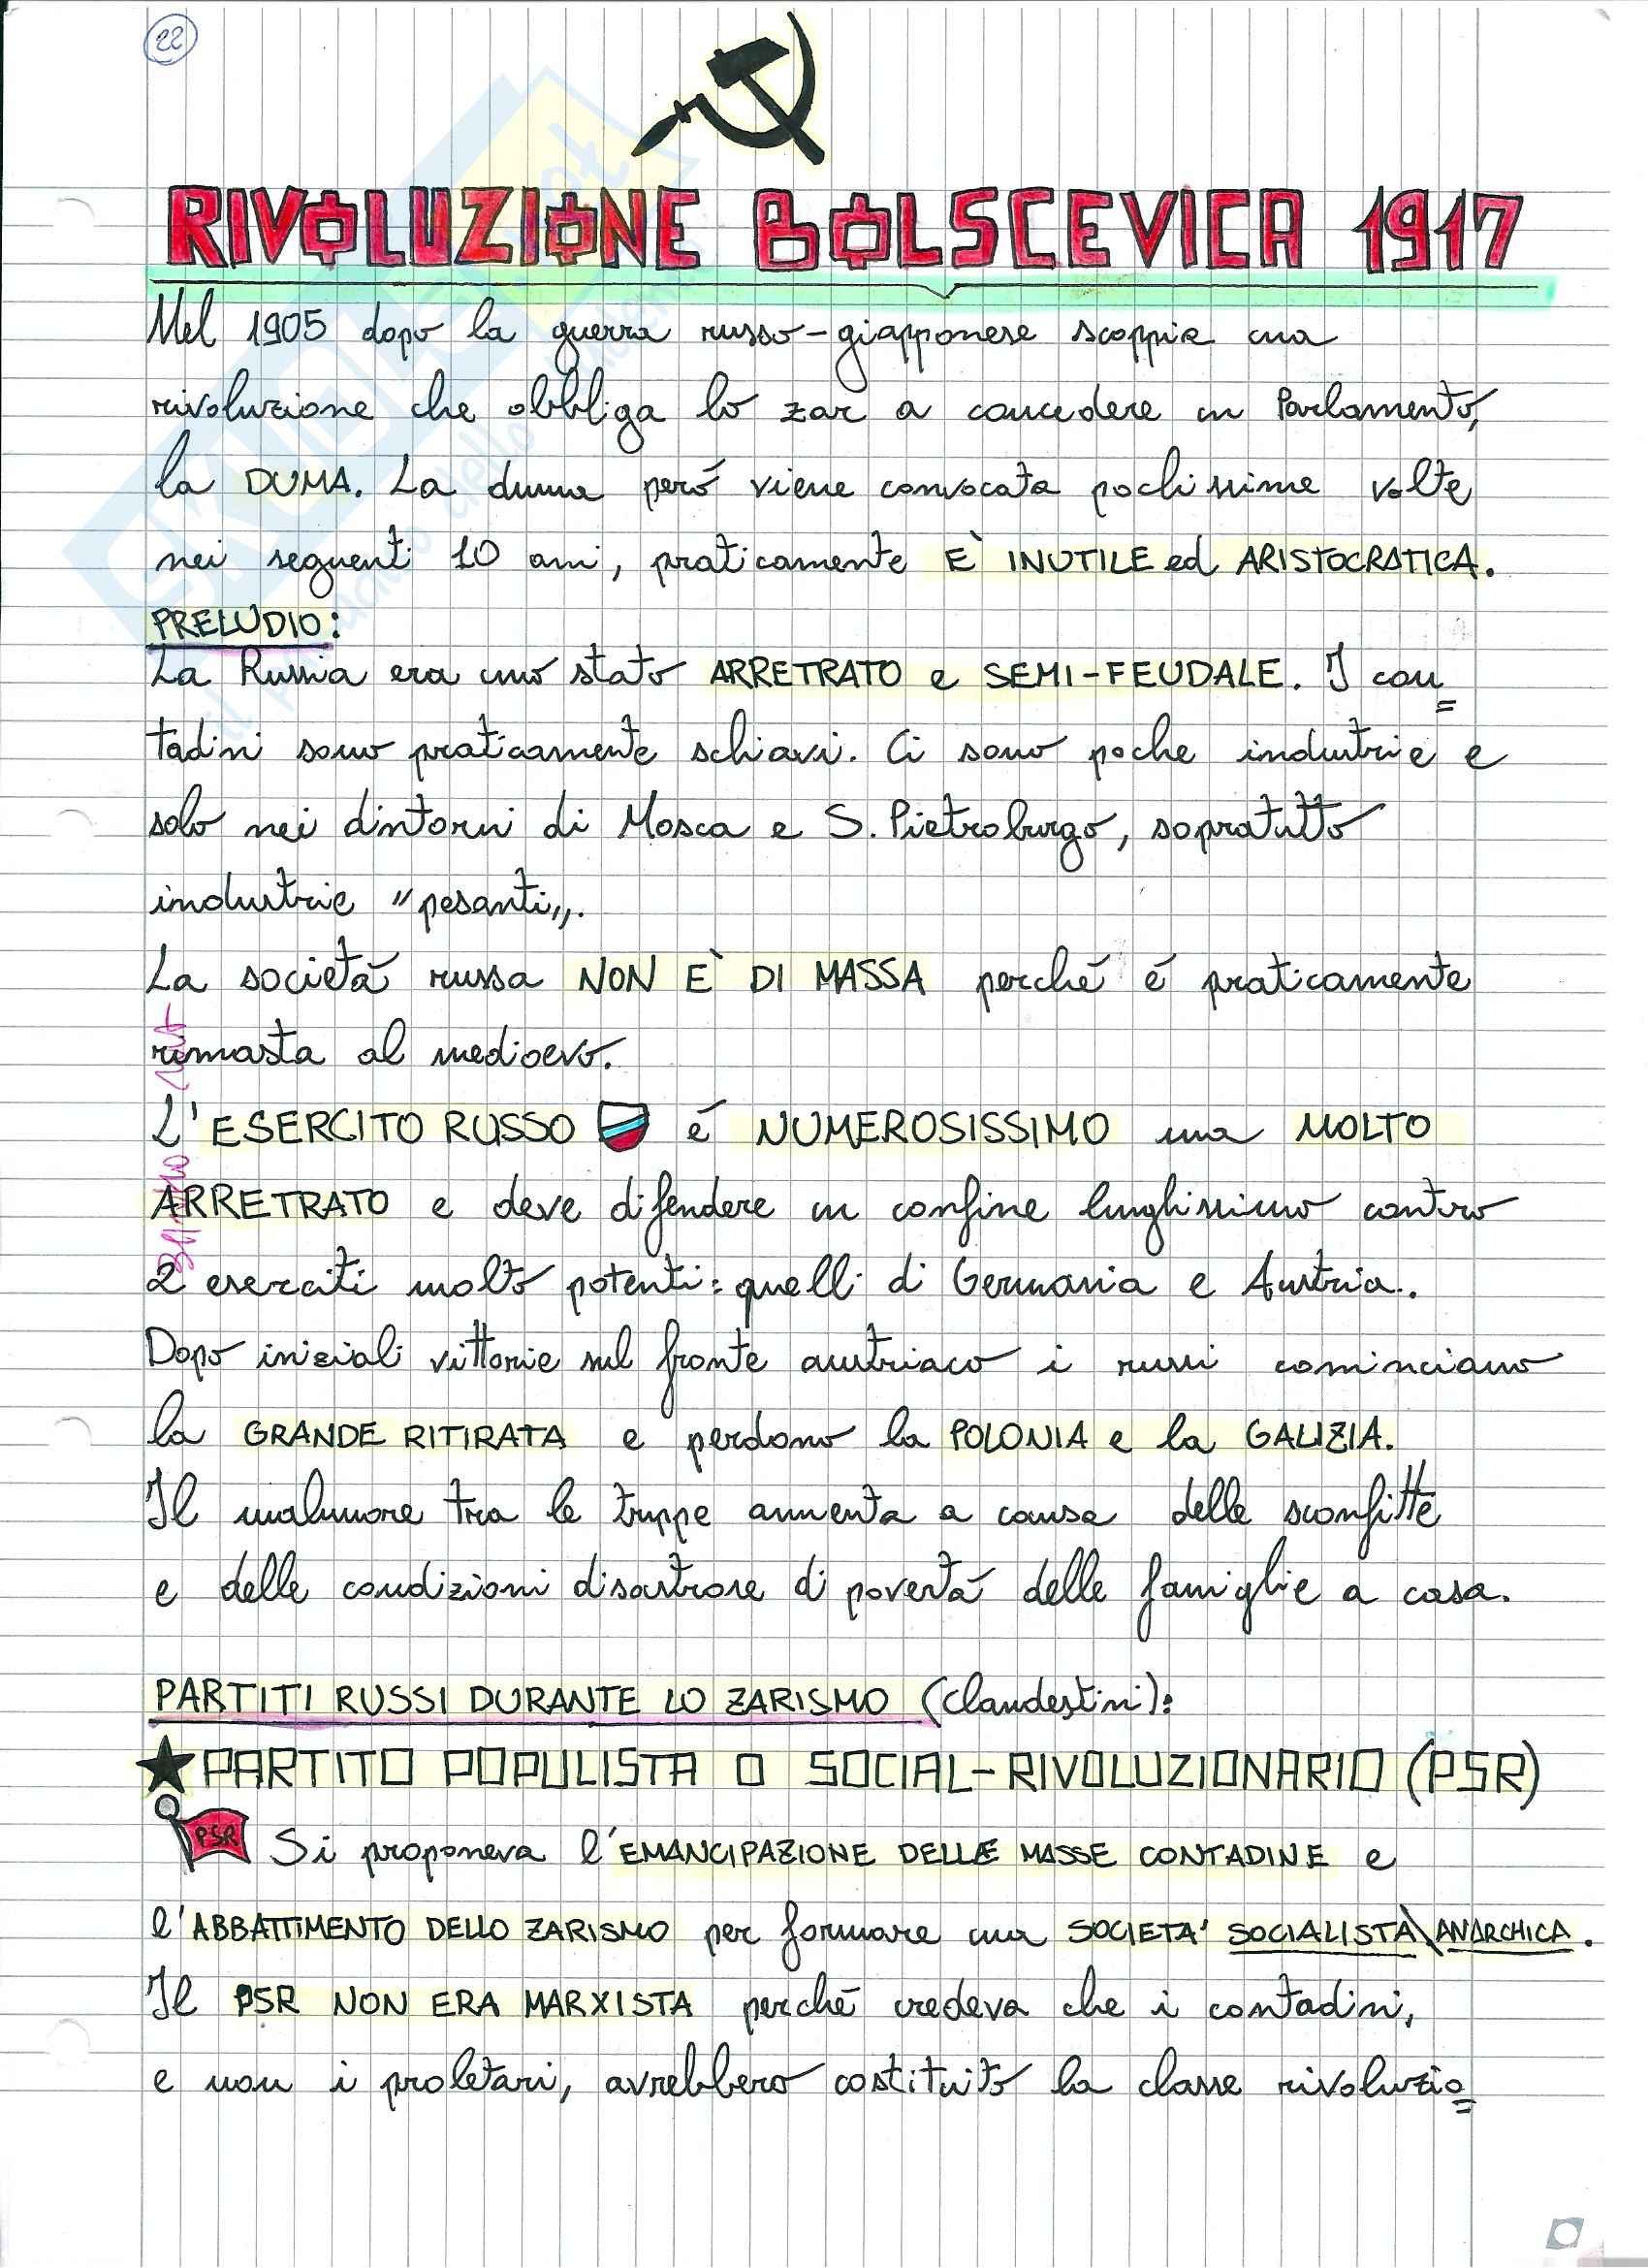 22
RIVOLUZIONE BOLSCEVICA 1917
Nel 1905 dopo la guerra russo-giapponese scoppia una
rivoluzione che obbliga lo zar a concedere un Parlamento,
la DUMA. La duma però viene convocata pochissime volte
nei seguenti 10 anni, praticamente E' INUTILE ed ARISTOCRATICA.
PRELUDIO:
La Russia era uno stato ARRETRATO e SEMI-FEUDALE. I con=
tadini sono praticamente schiavi. Ci sono poche industrie e
solo nei dintorni di Mosca e S. Pietroburgo, sopratutto
industrie "pesanti".
La società russa NON E' DI MASSA perché é praticamente
rimasta al medioevo.
L'ESERCITO RUSSO é NUMEROSISSIMO ma MOLTO
ARRETRATO e deve difendere un confine lunghissimo contro
2 eserciti molto potenti: quelli di Germania e Austria.
Dopo iniziali vittorie sul fronte austriaco i russi cominciano
la GRANDE RITIRATA e perdono la POLONIA e la GALIZIA.
Il malumore tra le truppe aumenta a causa delle sconfitte
e delle condizioni disastrose di povertà delle famiglie a casa.
PARTITI RUSSI DURANTE LO ZARISMO (clandestini):
PARTITO POPULISTA O SOCIAL-RIVOLUZIONARIO (PSR)
PSR Si proponeva l'EMANCIPAZIONE DELLE MASSE CONTADINE e
l'ABBATTIMENTO DELLO ZARISMO per formare una SOCIETA' SOCIALISTA\ANARCHICA.
Il PSR NON ERA MARXISTA perché credeva che i contadini,
e non i proletari, avrebbero costituito la classe rivoluzio=